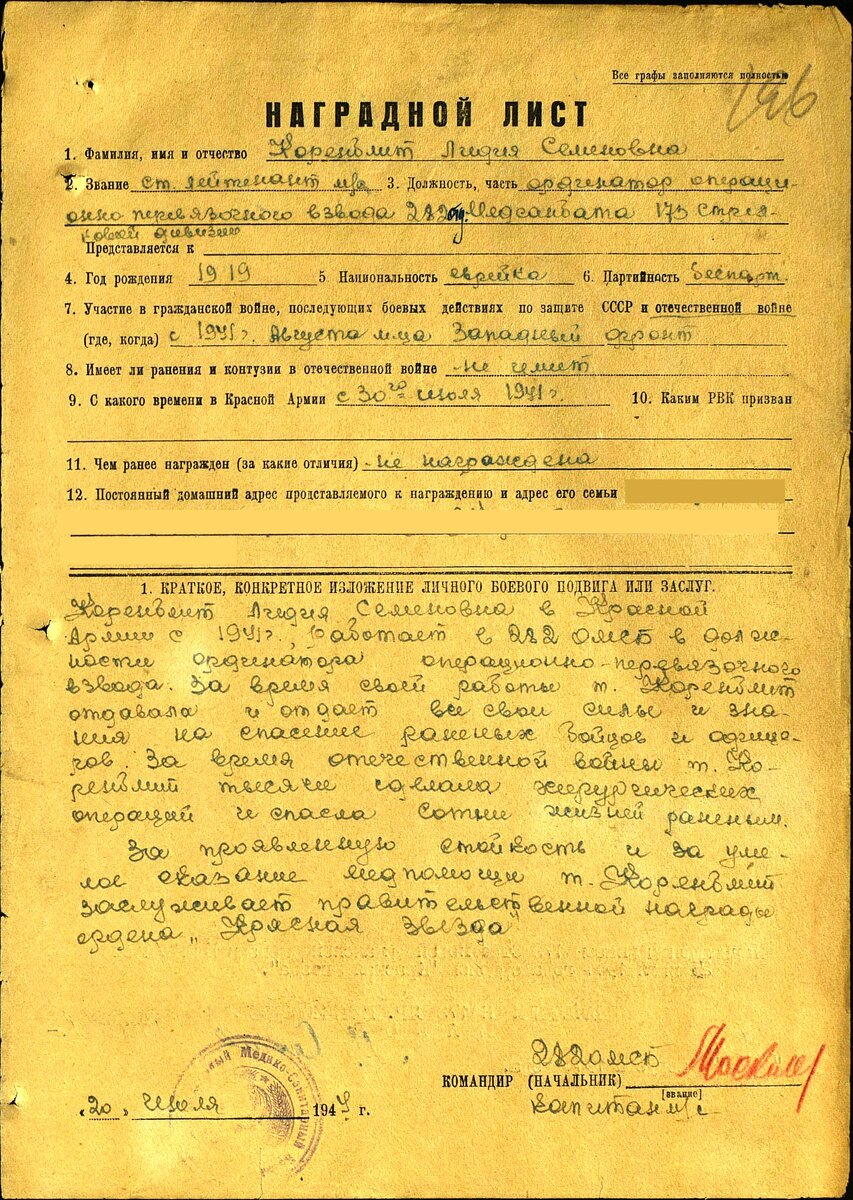 Все графы заполняются полностью
196
НАГРАДНОЙ ЛИСТ
1. Фамилия, имя и отчество Коренблит Лидия Семеновна
2. Звание ст. лейтенант м/с 3. Должность, часть ординатор операци-
онно перевязочного взвода 282 отд. Медсанбата 173 стрел-
ковой дивизии
Представляется к
4. Год рождения 1919 5. Национальность еврейка 6. Партийность беспарт.
7. Участие в гражданской войне, последующих боевых действиях по защите СССР и отечественной войне
(где, когда) с 1941 г. Августа м-ца Западный фронт
8. Имеет ли ранения и контузии в отечественной войне не имеет
9. С какого времени в Красной Армии с 30го июля 1941 г. 10. Каким РВК призван
11. Чем ранее награжден (за какие отличия) не награждена
12. Постоянный домашний адрес представляемого к награждению и адрес его семьи
1. КРАТКОЕ, КОНКРЕТНОЕ ИЗЛОЖЕНИЕ ЛИЧНОГО БОЕВОГО ПОДВИГА ИЛИ ЗАСЛУГ.
Коренблит Лидия Семеновна в Красной
Армии с 1941 г., работает в 282 омсб в долж-
ности ординатора операционно-перевязочного
взвода. За время своей работы т. Коренблит
отдавала и отдает все свои силы и зна-
ния на спасение раненых бойцов и офице-
ров. За время отечественной войны т. Ко-
ренблит тысячи сделала хирургических
операций и спасла сотни жизней раненым.
За проявленную стойкость и за уме-
лое оказание медпомощи т. Коренблит
заслуживает правительственной награды
ордена „Красная звезда"
282 омсб
КОМАНДИР (НАЧАЛЬНИК)
[звание]
капитан м/с
„20„ июля 1944 г.
Медико-Санитарный